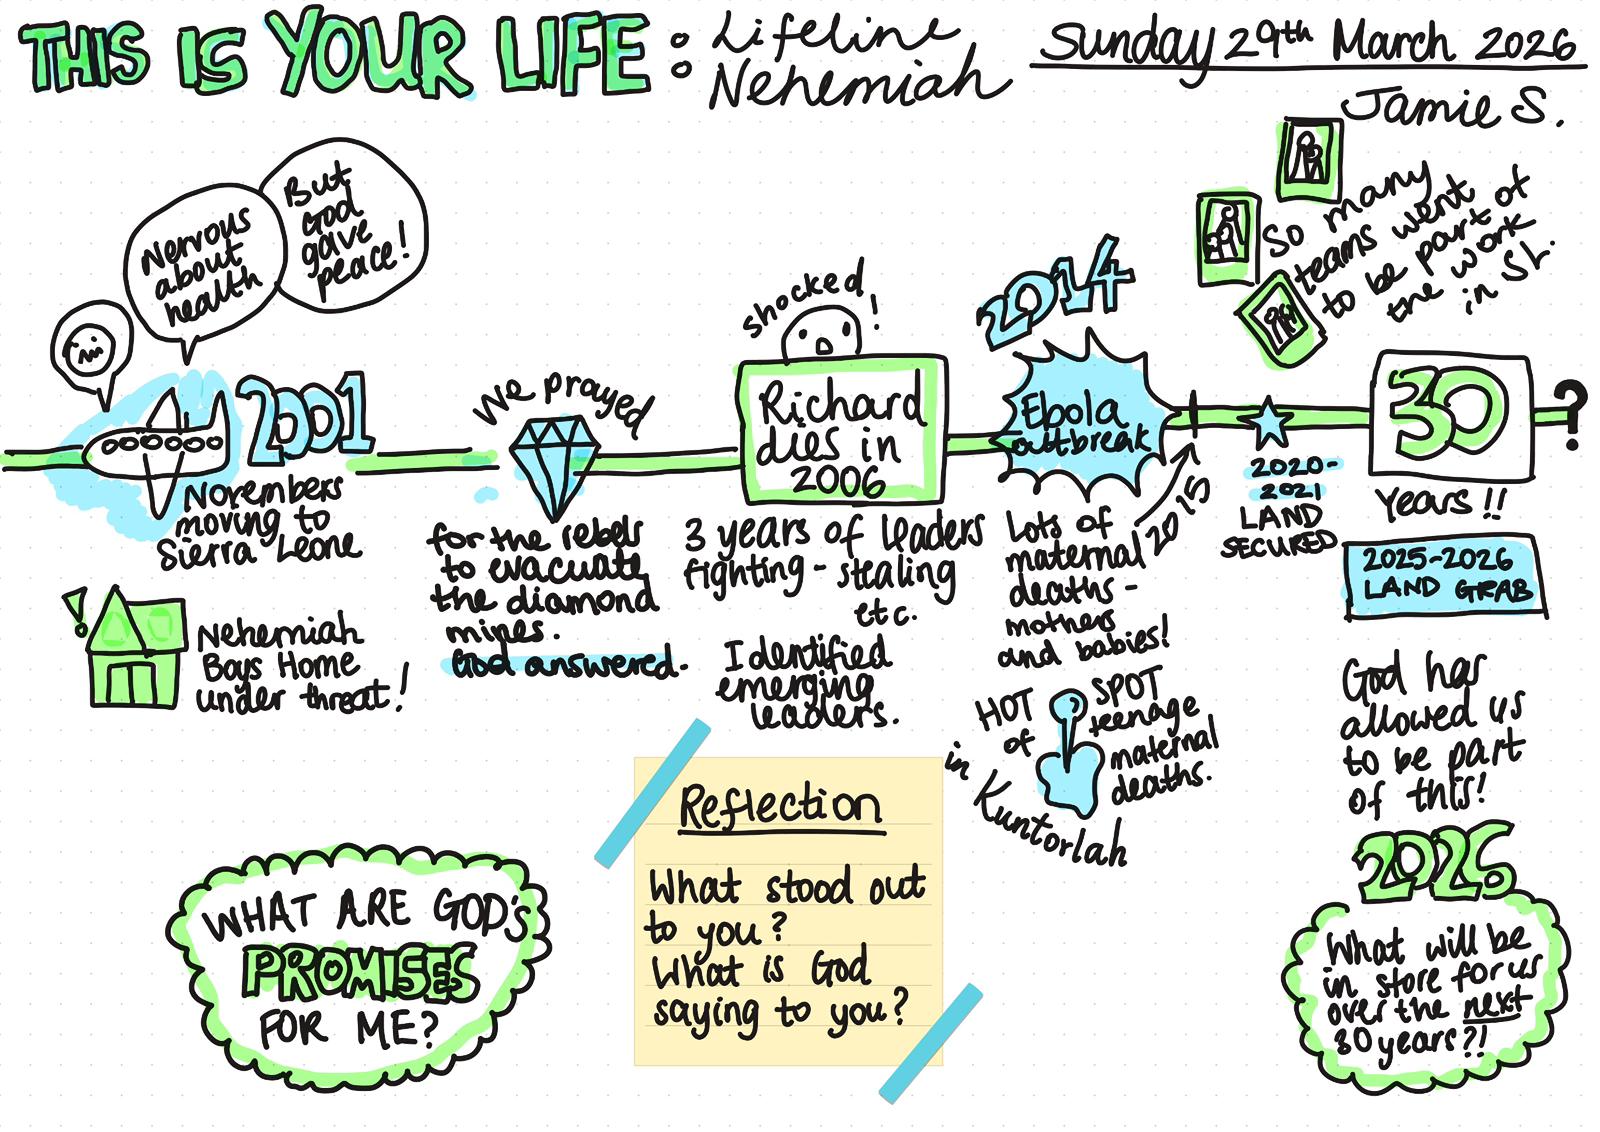 THIS IS YOUR LIFE :
Lifeline
Nehemiah
Sunday 29th March 2026
Jamie S.
Nervous
about
health
But
God
gave
peace!
2001
Novembers
moving to
Sierra Leone
!
Nehemiah
Boys Home
under threat!
We prayed
for the rebels
to evacuate
the diamond
mines.
God answered.
shocked!
Richard
dies in
2006
3 years of leaders
fighting - stealing
etc.
Identified
emerging
leaders.
2014
Ebola
outbreak
2015
Lots of
maternal
deaths -
mothers
and babies!
HOT SPOT
of teenage
maternal
deaths.
in Kuntorlah
So many
teams went
to be part of
the work
in SL.
2020-
2021
LAND
SECURED
30
Years!!
?
2025-2026
LAND GRAB
God has
allowed us
to be part
of this!
2026
What will be
in store for us
over the next
30 years?!
WHAT ARE GOD'S
PROMISES
FOR ME?
Reflection
What stood out
to you?
What is God
saying to you?